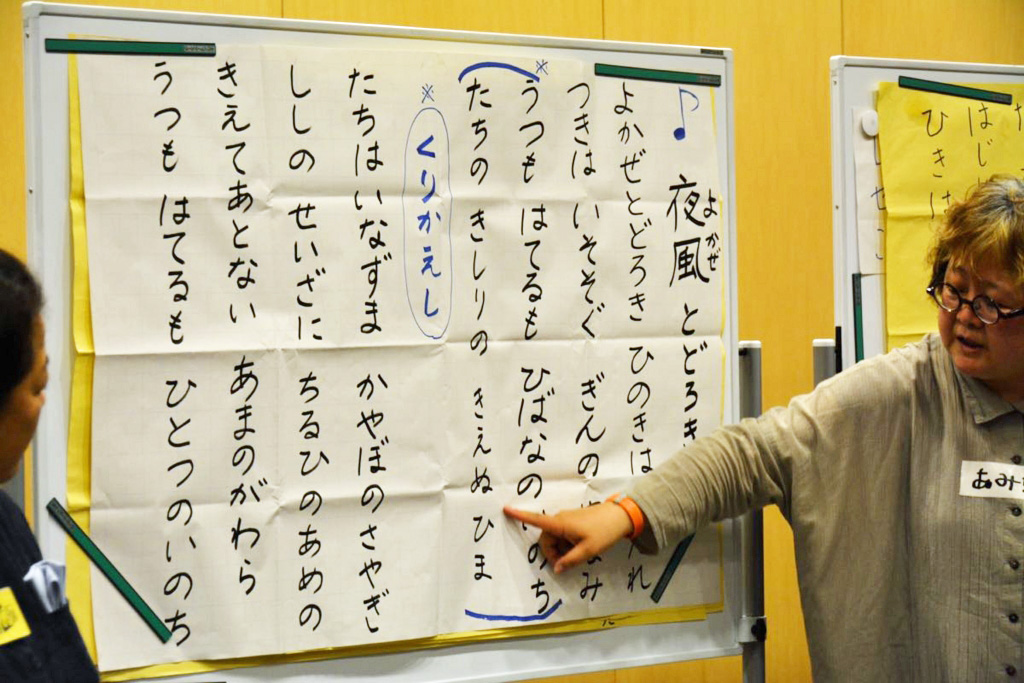 ♪ 夜風 とどろき
よかぜ
よかぜとどろき ひのきは れ
つきは いそそぐ ぎんの なみ
※
うつも はてるも ひばなの いのち
たちの きしりの きえぬ ひま
※ くりかえし
たちは いなずま かやぼの さやぎ
ししの せいざに ちるひのあめの
きえてあとない あまのがわら
うつも はてるも ひとつのいのち
はじ
ひきは
あみ